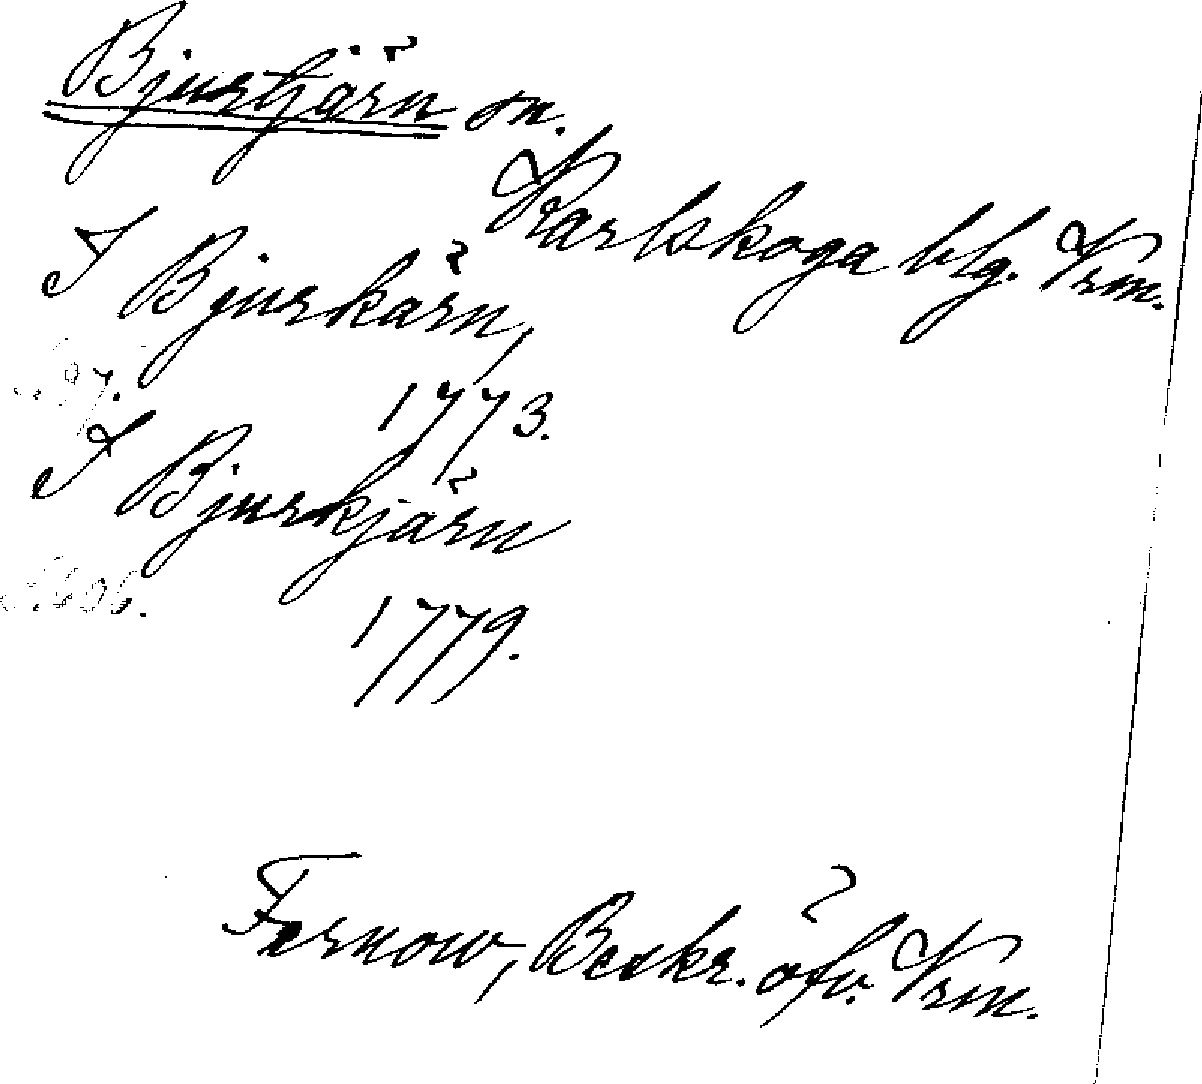 Bjurtjärn sn.
Karlskoga blg. Vrm.
I Bjurkärn,
1773.
I Bjurkjärn
1779.
Fernow, Beskr. öfv. Vrm.